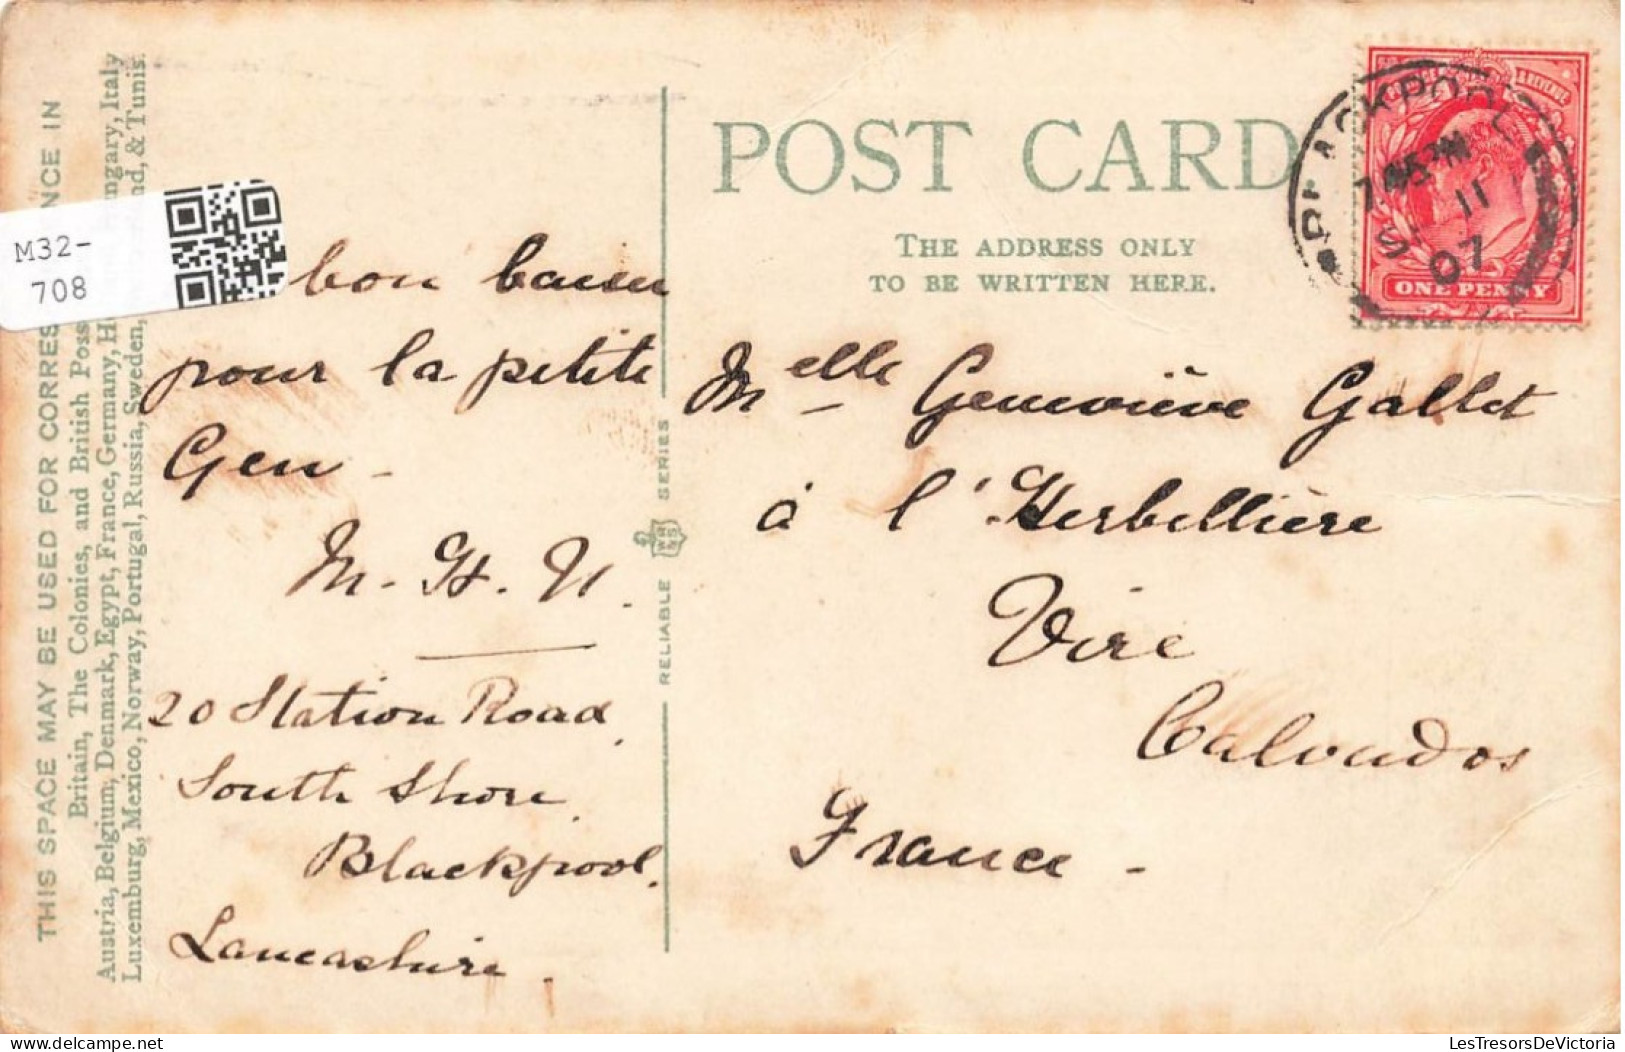 POST CARD
THE ADDRESS ONLY
TO BE WRITTEN HERE.
THIS SPACE MAY BE USED FOR CORRES NCE IN
Britain, The Colonies, and British Poss
Austria, Belgium, Denmark, Egypt, France, Germany, H ungary, Italy
Luxemburg, Mexico, Norway, Portugal, Russia, Sweden, nd, & Tunis.
M32-
708
bon baiser
pour la petite
Gen -
M. H. N.
20 Station Road,
South Shore,
Blackpool.
Lancashire.
RELIABLE WR&S SERIES
BLACKPOOL
11
07
ONE PENNY
Melle Geneviève Gallet
à l'Herbellière
Vire
Calvados
France -
LesTresorsDeVictoria.com